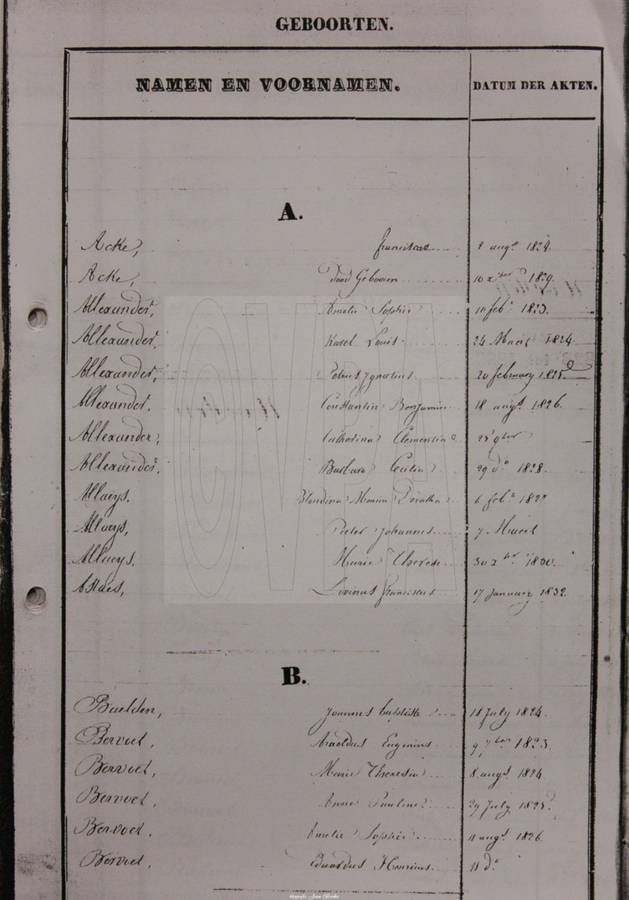 GEBOORTEN.
NAMEN EN VOORNAMEN. DATUM DER AKTEN.
A.
Acke, franciscae 8 augt 1824.
Acke, dood Geboren 10 xber 1829.
Allexander, Amelie Sophie 10 feb 1823.
Allexander, Karel Louis 24 Maart 1824.
Allexander, Petrus Ignatius 20 february 1825
Allexander, Constantin Benjamin 18 augt 1826.
Allexander, Catharina Clementina 9ber
Allexander, Barbara Cecilia 29 do 1828.
Allaeys. Blondina Maria Dorothea 6 feb
Allaeys, Pieter Johannes 7 Maart
Allaeys, Marie Therese 30 xber 1830.
Livinus franciscus 17 January 1832.
B.
Baelden, Joannes baptiste 18 July 1824.
Bervoet, Eugenius 9 7ber 1823.
Bervoet, Marie Theresia 8 augt 1824
Bervoet, Anna Pauline 29 July 1825.
Bervoet. Amelie Sophie 11 augt 1826.
Bervoet. Eduardus Henricus 11 do